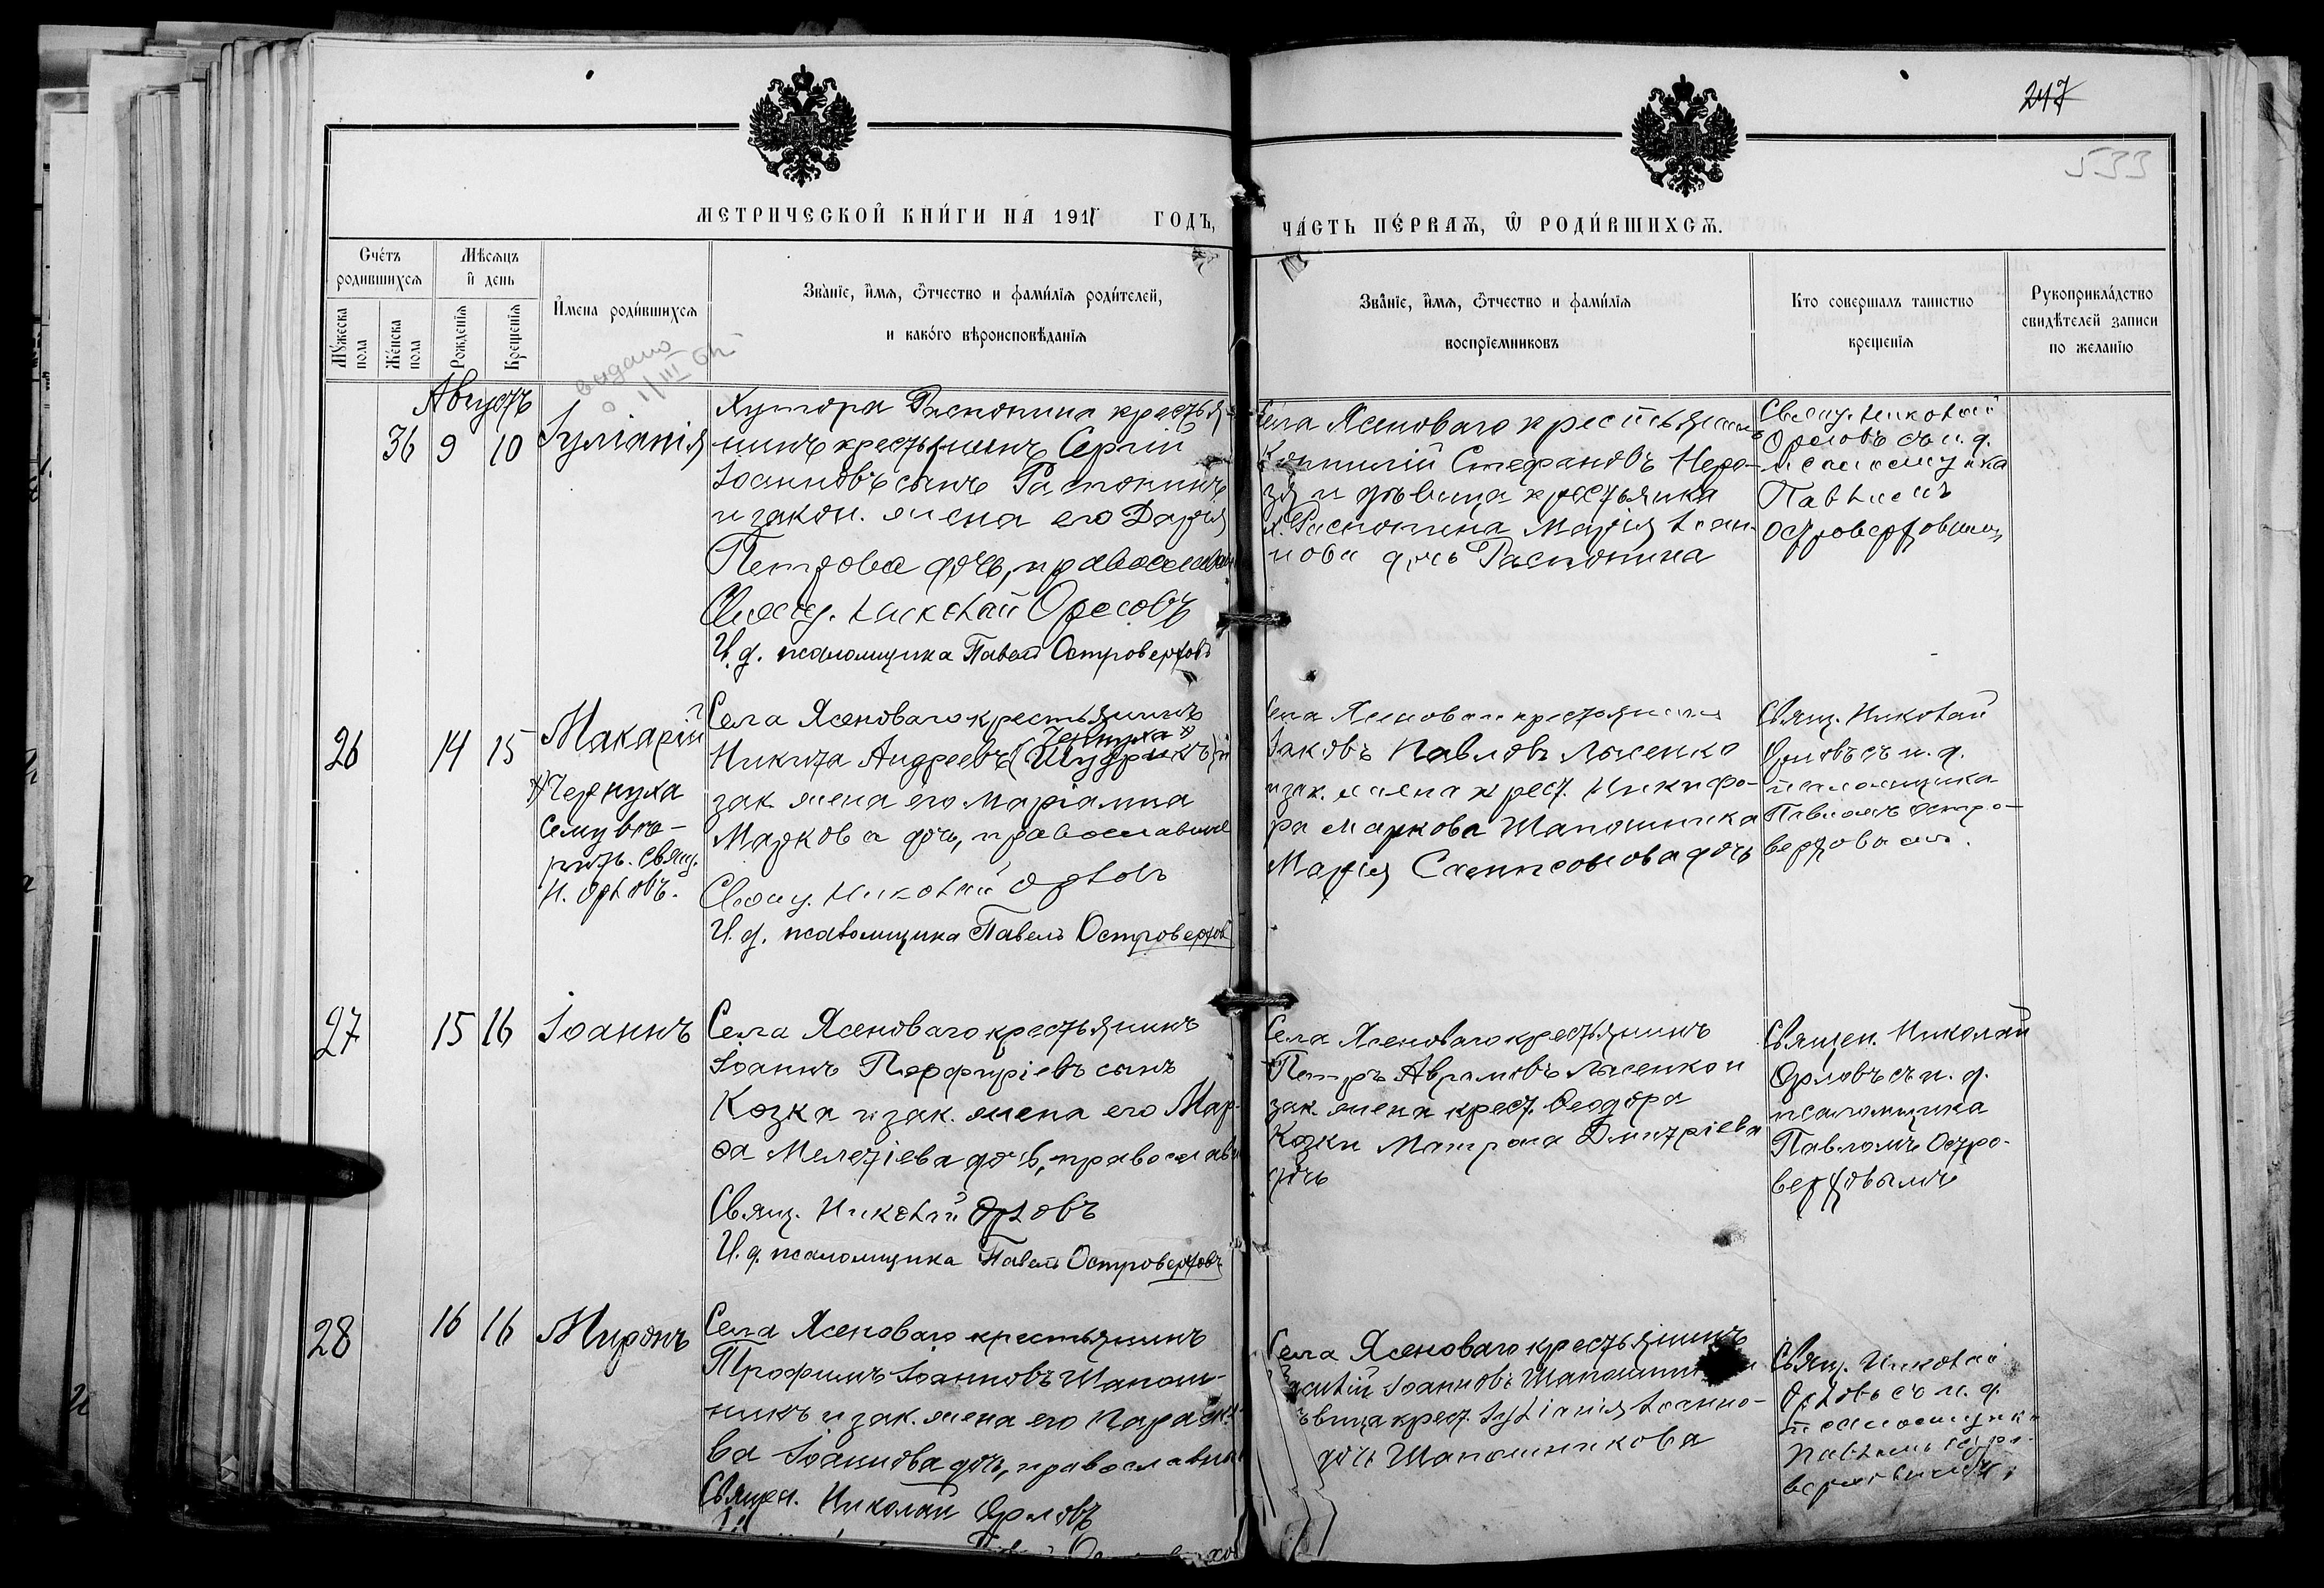 247
533
МЕТРИЧЕСКОЙ КНИГИ НА 1911 ГОДЪ,
ЧАСТЬ ПЕРВАЯ, Ѡ РОДИВШИХСЯ.
Счетъ родившихся
Мужеска пола
Женска пола
Мѣсяцъ и день
Рожденія
Крещенія
Имена родившихся
Званіе, имя, ѻтчество и фамилія родителей,
и какого вѣроисповѣданія
Званіе, имя, ѻтчество и фамилія
воспріемниковъ
Кто совершалъ таинство
крещенія
Рукоприкладство
свидѣтелей записи
по желанію
видано
1/III
Августъ
36 9 10 Іуліанія
Хутора Распопина крестья-
нинъ крестьянинъ Сергій
Іоанновъ сынъ Распопинъ
и закон. жена его Дарія
Петрова дочь, православн
Свящ. Николай Орловъ
И. д. псаломщика Павелъ Островерховъ
Села Ясеноваго крестьянинъ
Стефановъ
и дѣвица крестьянка
х. Распопина Марія Іоан-
нова дочь Распопина
Свящ. Николай
Орловъ съ и. д.
псаломщика
Павломъ
Островерховымъ
26 14 15 Макарій
*) Чернуха
Свящ.
Н. Орловъ.
Села Ясеноваго крестьянинъ
Чернуха *)
Никита Андреевъ (Шудрикъ) и
зак. жена его Маріамна
Маркова дочь, православные
Свящ. Николай Орловъ
И. д. псаломщика Павелъ Островерховъ
Села Ясеноваго крестьянинъ
Іаковъ Павловъ Лысенко
и зак. жена крест. Никифо-
ра Маркова Шапошника
Марія Сампсонова дочь
Свящ. Николай
Орловъ съ и. д.
псаломщика
Павломъ Остро-
верховымъ.
27 15 16 Іоаннъ
Села Ясеноваго крестьянинъ
Іоаннъ Порфиріевъ сынъ
Козка и зак. жена его Мар-
ѳа Мелетіева дочь, православн
Свящ. Николай Орловъ
И. д. псаломщика Павелъ Островерховъ
Села Ясеноваго крестьянинъ
Петръ Аврамовъ Лысенко и
зак. жена крест. Ѳеодора
Козки Матрона Дмитріева
дочь
Священ. Николай
Орловъ съ и. д.
псаломщика
Павломъ Остро-
верховымъ
28 16 16 Миронъ
Села Ясеноваго крестьянинъ
Трофимъ Іоанновъ Шапош-
никъ и зак. жена его Параске-
ва Іоаннова дочь, православные
Священ. Николай Орловъ
Села Ясеноваго крестьянинъ
Іоанновъ
ѣвица крест. Іуліанія Іоанно-
дочь Шапошникова
Свящ. Николай
Орловъ съ и. д.
псаломщика
Павломъ Остро-
верховымъ